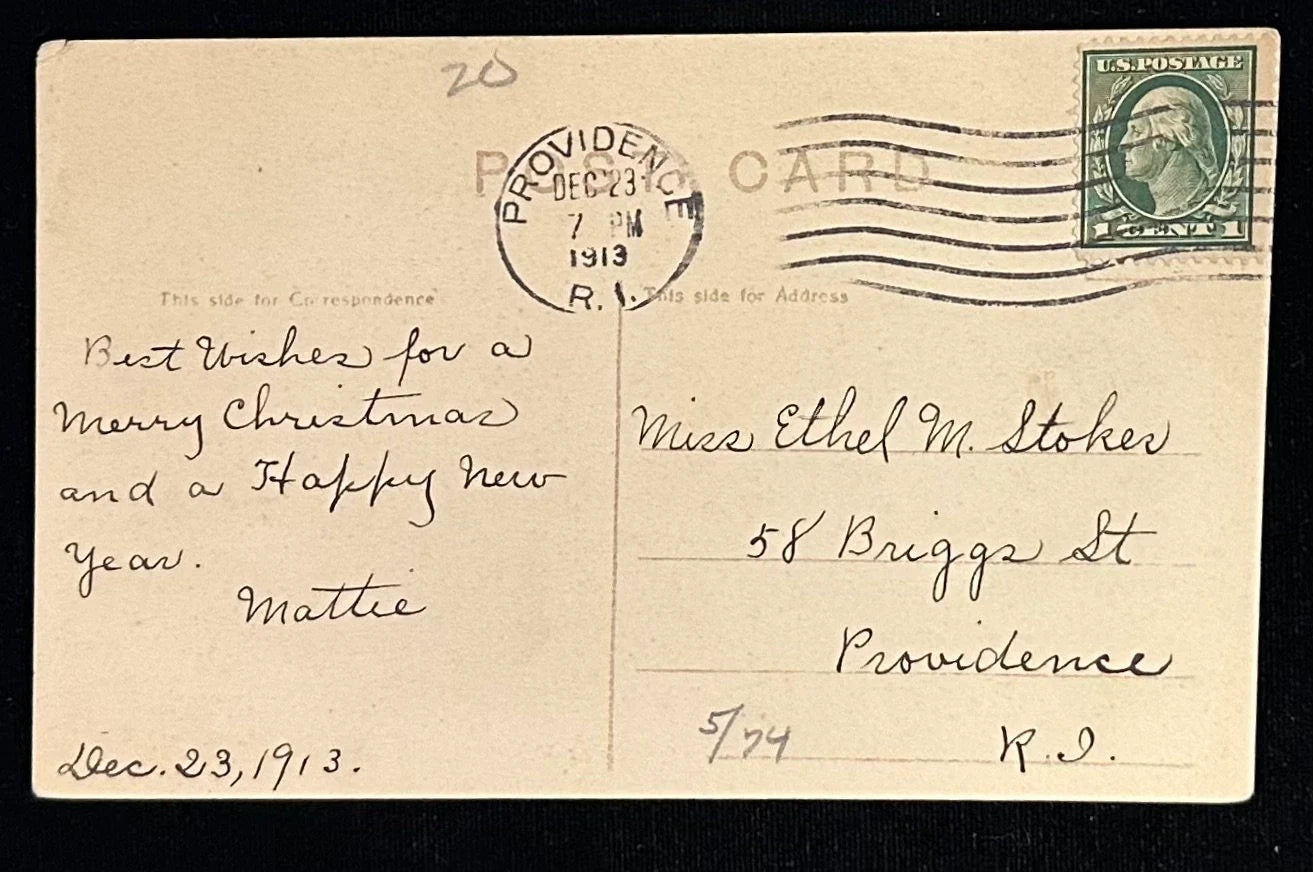 20
U.S. POSTAGE
1 CENT 1
PROVIDENCE
DEC 23
7 PM
1913
R. I.
POST CARD
This side for Correspondence
This side for Address
Best Wishes for a
Merry Christmas
and a Happy New
Year.
Mattie
Dec. 23, 1913.
Miss Ethel M. Stokes
58 Briggs St
Providence
R. I.
5/74